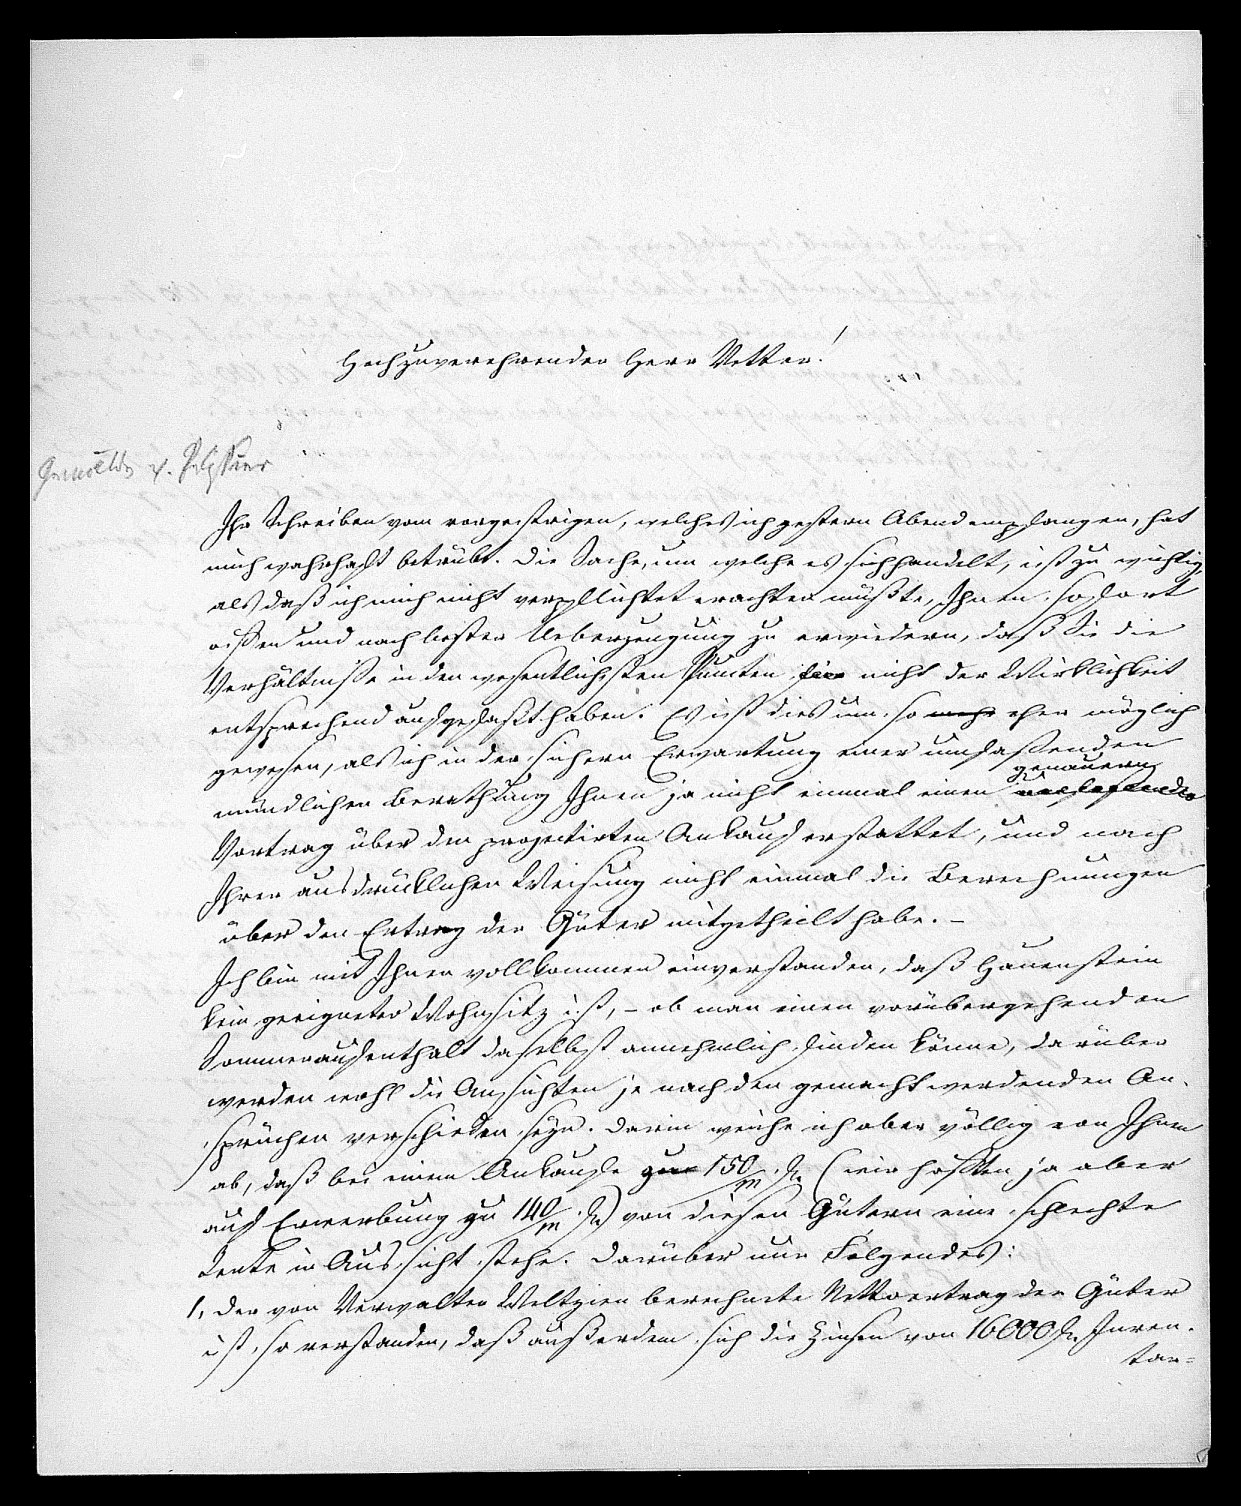 Hochzuverehrender Herr Vetter!
v.
Ihr Schreiben vom vorgestrigen, welches ich gestern Abend empfangen, hat
mich wahrhaft betrübt. Die Sache, um welche es sich handelt, ist zu wichtig,
als daß ich mich nicht verpflichtet erachten müßte, Ihnen sofort
offen und nach bester Ueberzeugung zu erwiedern, daß Sie die
Verhältnisse in den wesentlichsten Puncten nicht der Wirklichkeit
entsprechend aufgefaßt haben. Es ist dies um so mehr eher möglich
gewesen, als ich in der sichern Erwartung einer umfassenden
mündlichen Berathung Ihnen ja nicht einmal einen umfassenden
genauern
Vortrag über den projectirten Ankauf erstattet, und nach
Ihrer ausdrücklichen Weisung nicht einmal die Berechnungen
über den Ertrag der Güter mitgetheilt habe. –
Ich bin mit Ihnen vollkommen einverstanden, daß Hauenstein
kein geeigneter Wohnsitz ist, – ob man einen vorübergehenden
Sommeraufenthalt daselbst annehmlich finden könne, darüber
werden wohl die Ansichten je nach den gemacht werdenden An-
sprüchen verschieden seyn. Darin weiche ich aber völlig von Ihnen
ab, daß bei einem Ankaufe zu 150/m f. (wir hofften ja aber
auf Erwerbung zu 140/m f.) von diesen Gütern eine schlechte
Rente in Aussicht stehe. Darüber nur Folgendes:
1, Der von Verwalter Weltzien berechnete Nettoertrag der Güter
ist so verstanden, daß außerdem sich die Zinsen von 16000 f. Inven-
tar-